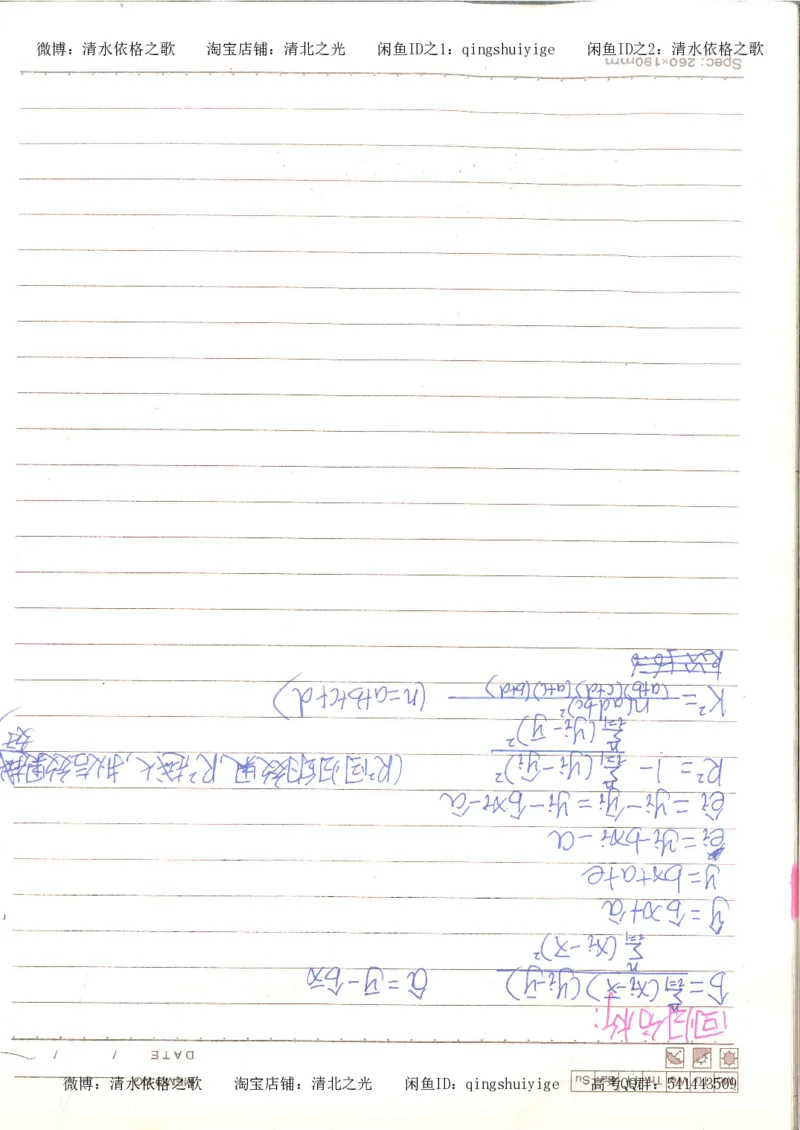 微博：清水依格之歌 淘宝店铺：清北之光 闲鱼ID之1：qingshuiyige 闲鱼ID之2：清水依格之歌
Spec: 260×190mm
DATE / /
回归分析：
b̂ = Σⁿᵢ₌₁(xᵢ-x̄)(yᵢ-ȳ) / Σⁿᵢ₌₁(xᵢ-x̄)² â = ȳ - b̂x̄
ŷ = b̂x + â
y = bx + a + e
eᵢ = yᵢ - bxᵢ - a
êᵢ = yᵢ - ŷᵢ = yᵢ - b̂xᵢ - â
R² = 1 - Σⁿᵢ₌₁(yᵢ-ŷᵢ)² / Σⁿᵢ₌₁(yᵢ-ȳ)² (R²回归效果, R²越大, 拟合效果越好)
K² = n(ad-bc)² / (a+b)(c+d)(a+c)(b+d) (n=a+b+c+d)
微博：清水依格之歌 淘宝店铺：清北之光 闲鱼ID：qingshuiyige 高考QQ群：541443509